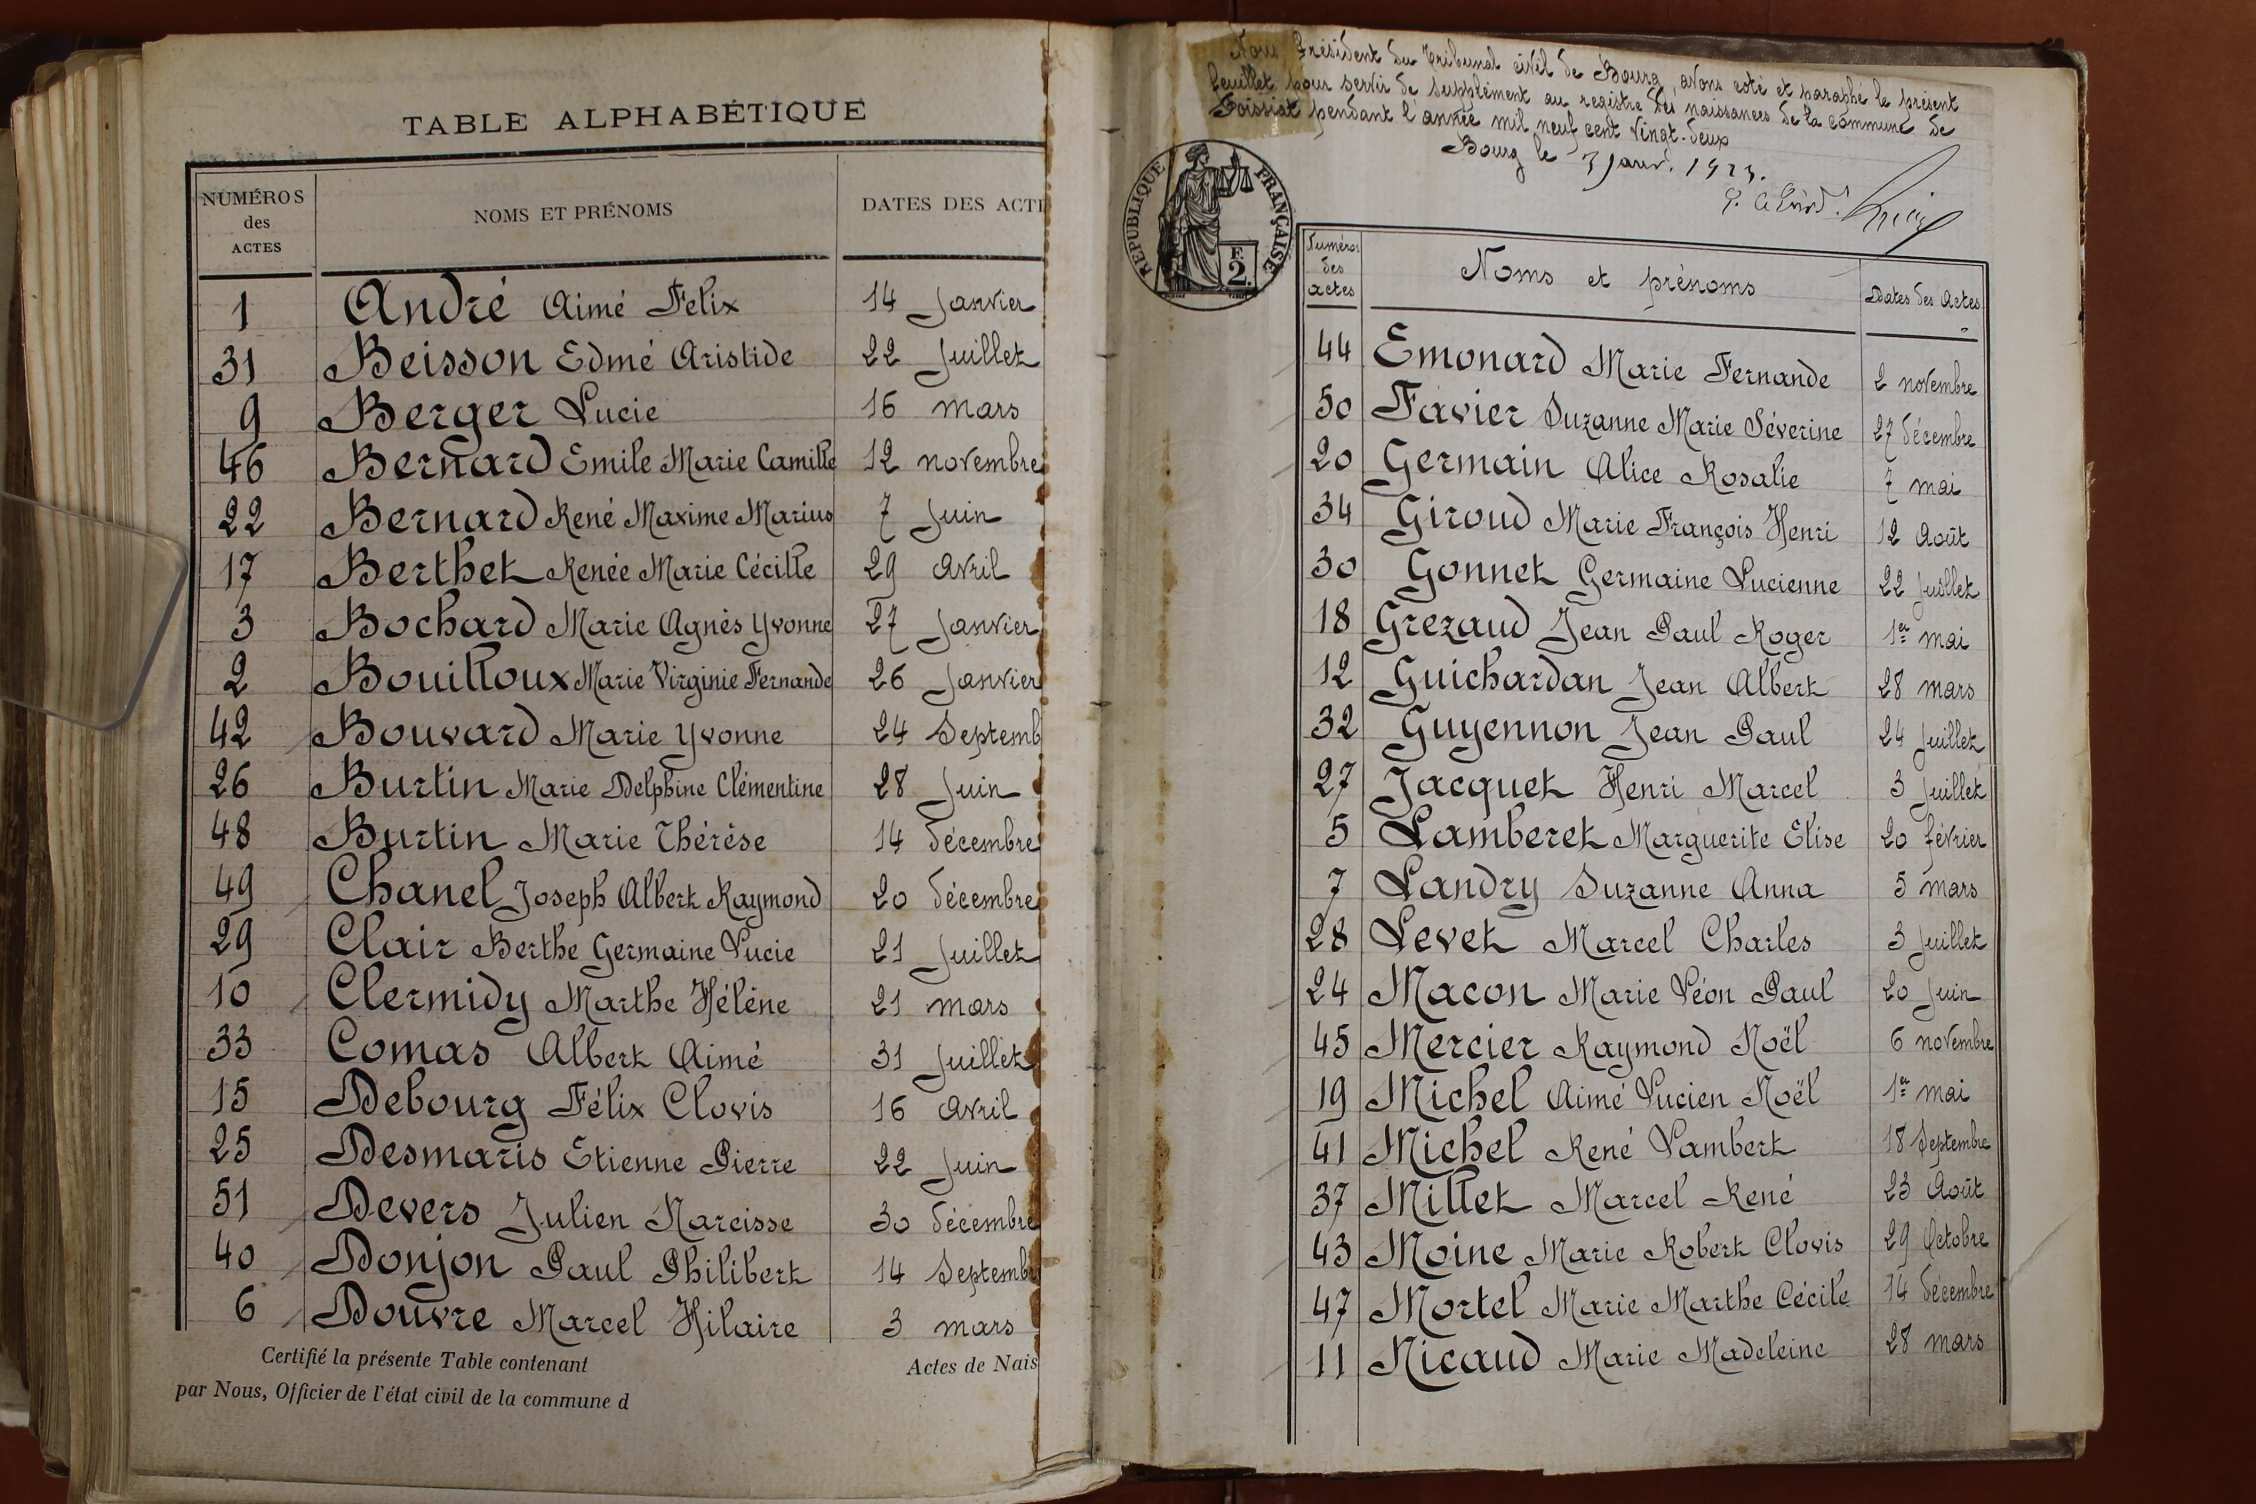 TABLE ALPHABÉTIQUE
NUMÉROS des ACTES NOMS ET PRÉNOMS DATES DES ACTE
1 André Aimé Felix 14 Janvier
31 Beisson Edmé Aristide 22 Juillet
9 Berger Lucie 16 mars
46 Bernard Emile Marie Camille 12 novembre
22 Bernard René Maxime Marius 7 Juin
17 Berthet Renée Marie Cécille 29 Avril
3 Bochard Marie Agnès Yvonne 27 Janvier
2 Bouilloux Marie Virginie Fernande 26 Janvier
42 Bouvard Marie Yvonne 24 Septemb
26 Burtin Marie Delphine Clémentine 28 Juin
48 Burtin Marie Thérèse 14 décembre
49 Chanel Joseph Albert Raymond 20 décembre
29 Clair Berthe Germaine Lucie 21 Juillet
10 Clermidy Marthe Hélène 21 mars
33 Comas Albert Aimé 31 Juillet
15 Debourg Félix Clovis 16 Avril
25 Desmaris Etienne Pierre 22 Juin
51 Devers Julien Narcisse 30 décembre
40 Donjon Paul Philibert 14 Septemb
6 Douvre Marcel Hilaire 3 mars
Certifié la présente Table contenant Actes de Nais
par Nous, Officier de l'état civil de la commune d
Nous Président du Tribunal civil de Bourg, avons coté et paraphé le présent
feuillet pour servir de supplément au registre des naissances de la commune de
Foissiat pendant l'année mil neuf cent vingt-deux
Bourg le 3 Janv. 1923.
RÉPUBLIQUE FRANÇAISE
F. 2.
Numéros des actes Noms et prénoms Dates des Actes
44 Emonard Marie Fernande 2 novembre
50 Favier Suzanne Marie Séverine 27 décembre
20 Germain Alice Rosalie 7 mai
34 Giroud Marie François Henri 12 Août
30 Gonnet Germaine Lucienne 22 Juillet
18 Grezaud Jean Paul Roger 1er mai
12 Guichardan Jean Albert 28 mars
32 Guyennon Jean Paul 24 Juillet
27 Jacquet Henri Marcel 3 Juillet
5 Lamberet Marguerite Elise 20 février
7 Landry Suzanne Anna 5 mars
28 Levet Marcel Charles 3 Juillet
24 Macon Marie Léon Paul 20 Juin
45 Mercier Raymond Noël 6 novembre
19 Michel Aimé Lucien Noël 1er mai
41 Michel René Lambert 18 Septembre
37 Millet Marcel René 23 Août
43 Moine Marie Robert Clovis 29 Octobre
47 Mortel Marie Marthe Cécile 14 décembre
11 Nicaud Marie Madeleine 28 mars